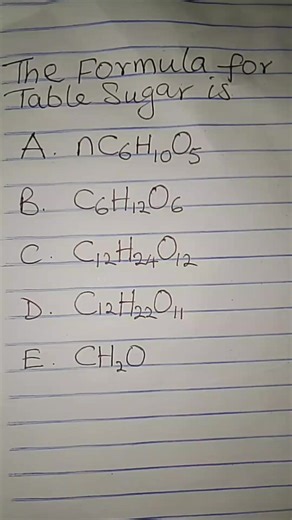 The Formula for
Table Sugar is
A. nC₆H₁₀O₅
B. C₆H₁₂O₆
C. C₁₂H₂₄O₁₂
D. C₁₂H₂₂O₁₁
E. CH₂O